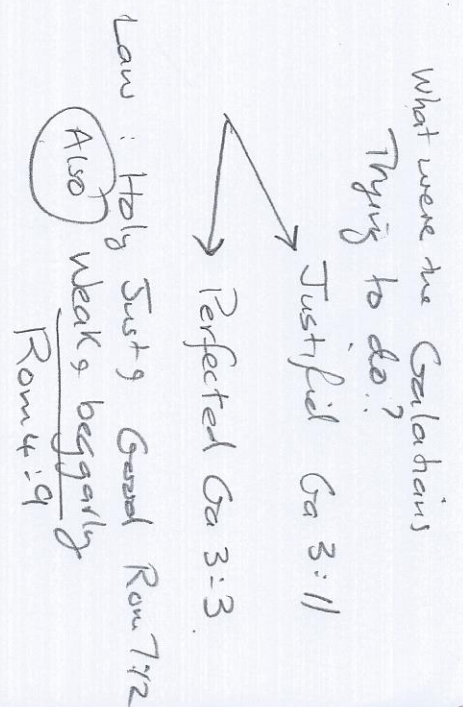 What were the Galatians
Trying to do?
Justified Ga 3:11
Perfected Ga 3:3
Law : Holy Just & Good Rom 7:12
Also Weak & beggarly
Rom 4:9